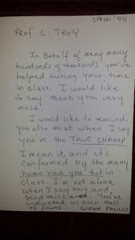 Prof. L. TROY
In Behalf of many many
hundreds of thousands you've
helped during your time
in class. I would like
to say thank you very
much.
I would like to remind
you also that when I say
you're the TRUE CHAMP,
I mean it, and it's
confirmed by the many
home run you hit in
class. I'm not alone
when I say this and